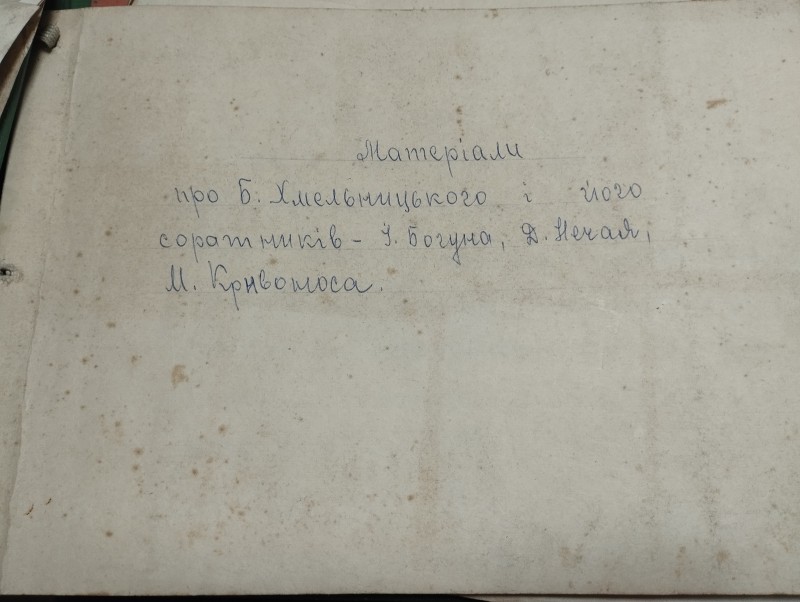 Матеріали
про Б. Хмельницького і його
соратників - І. Богуна, Д. Нечая,
М. Кривоноса.